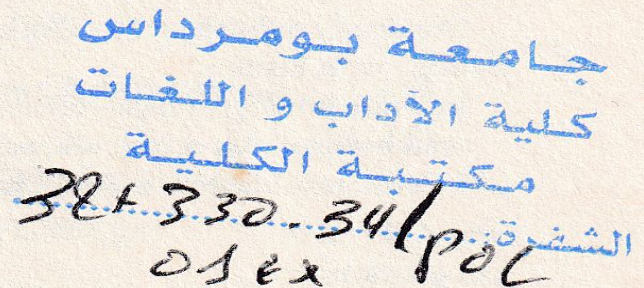 جامعة بومرداس
كلية الآداب و اللغات
مكتبة الكلية
الشفرة: 32+330.34/poc
01 ex